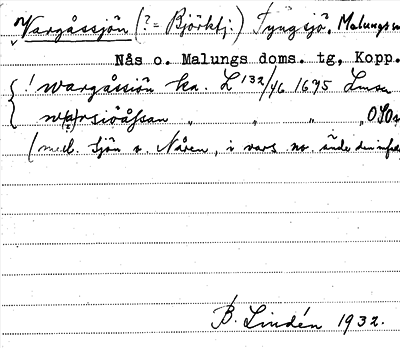 Vargåssjön (?= Björktj.) Tyngsjö. Malungs
Nås o. Malungs doms. tg, Kopp.
! wargåssiön ka. L 132/46 1695 Lmsa
w(a)rsiöåssan " " " OSO
(med. Sjön o. Nåren, i vars no ände den
B. Lindén 1932.